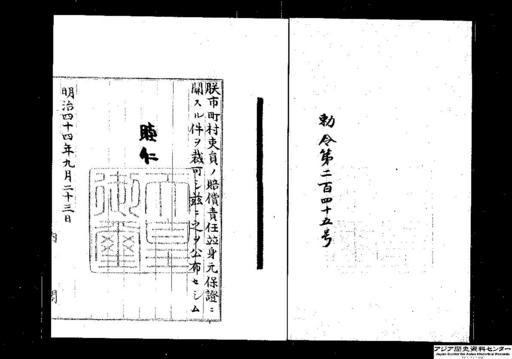 勅令第二百四十五号
朕市町村吏員ノ賠償責任竝身元保證ニ
關スル件ヲ裁可シ茲ニ之ヲ公布セシム
睦仁
天皇
御璽
明治四十四年九月二十三日
内閣
アジア歴史資料センター
Japan Center for Asian Historical Records